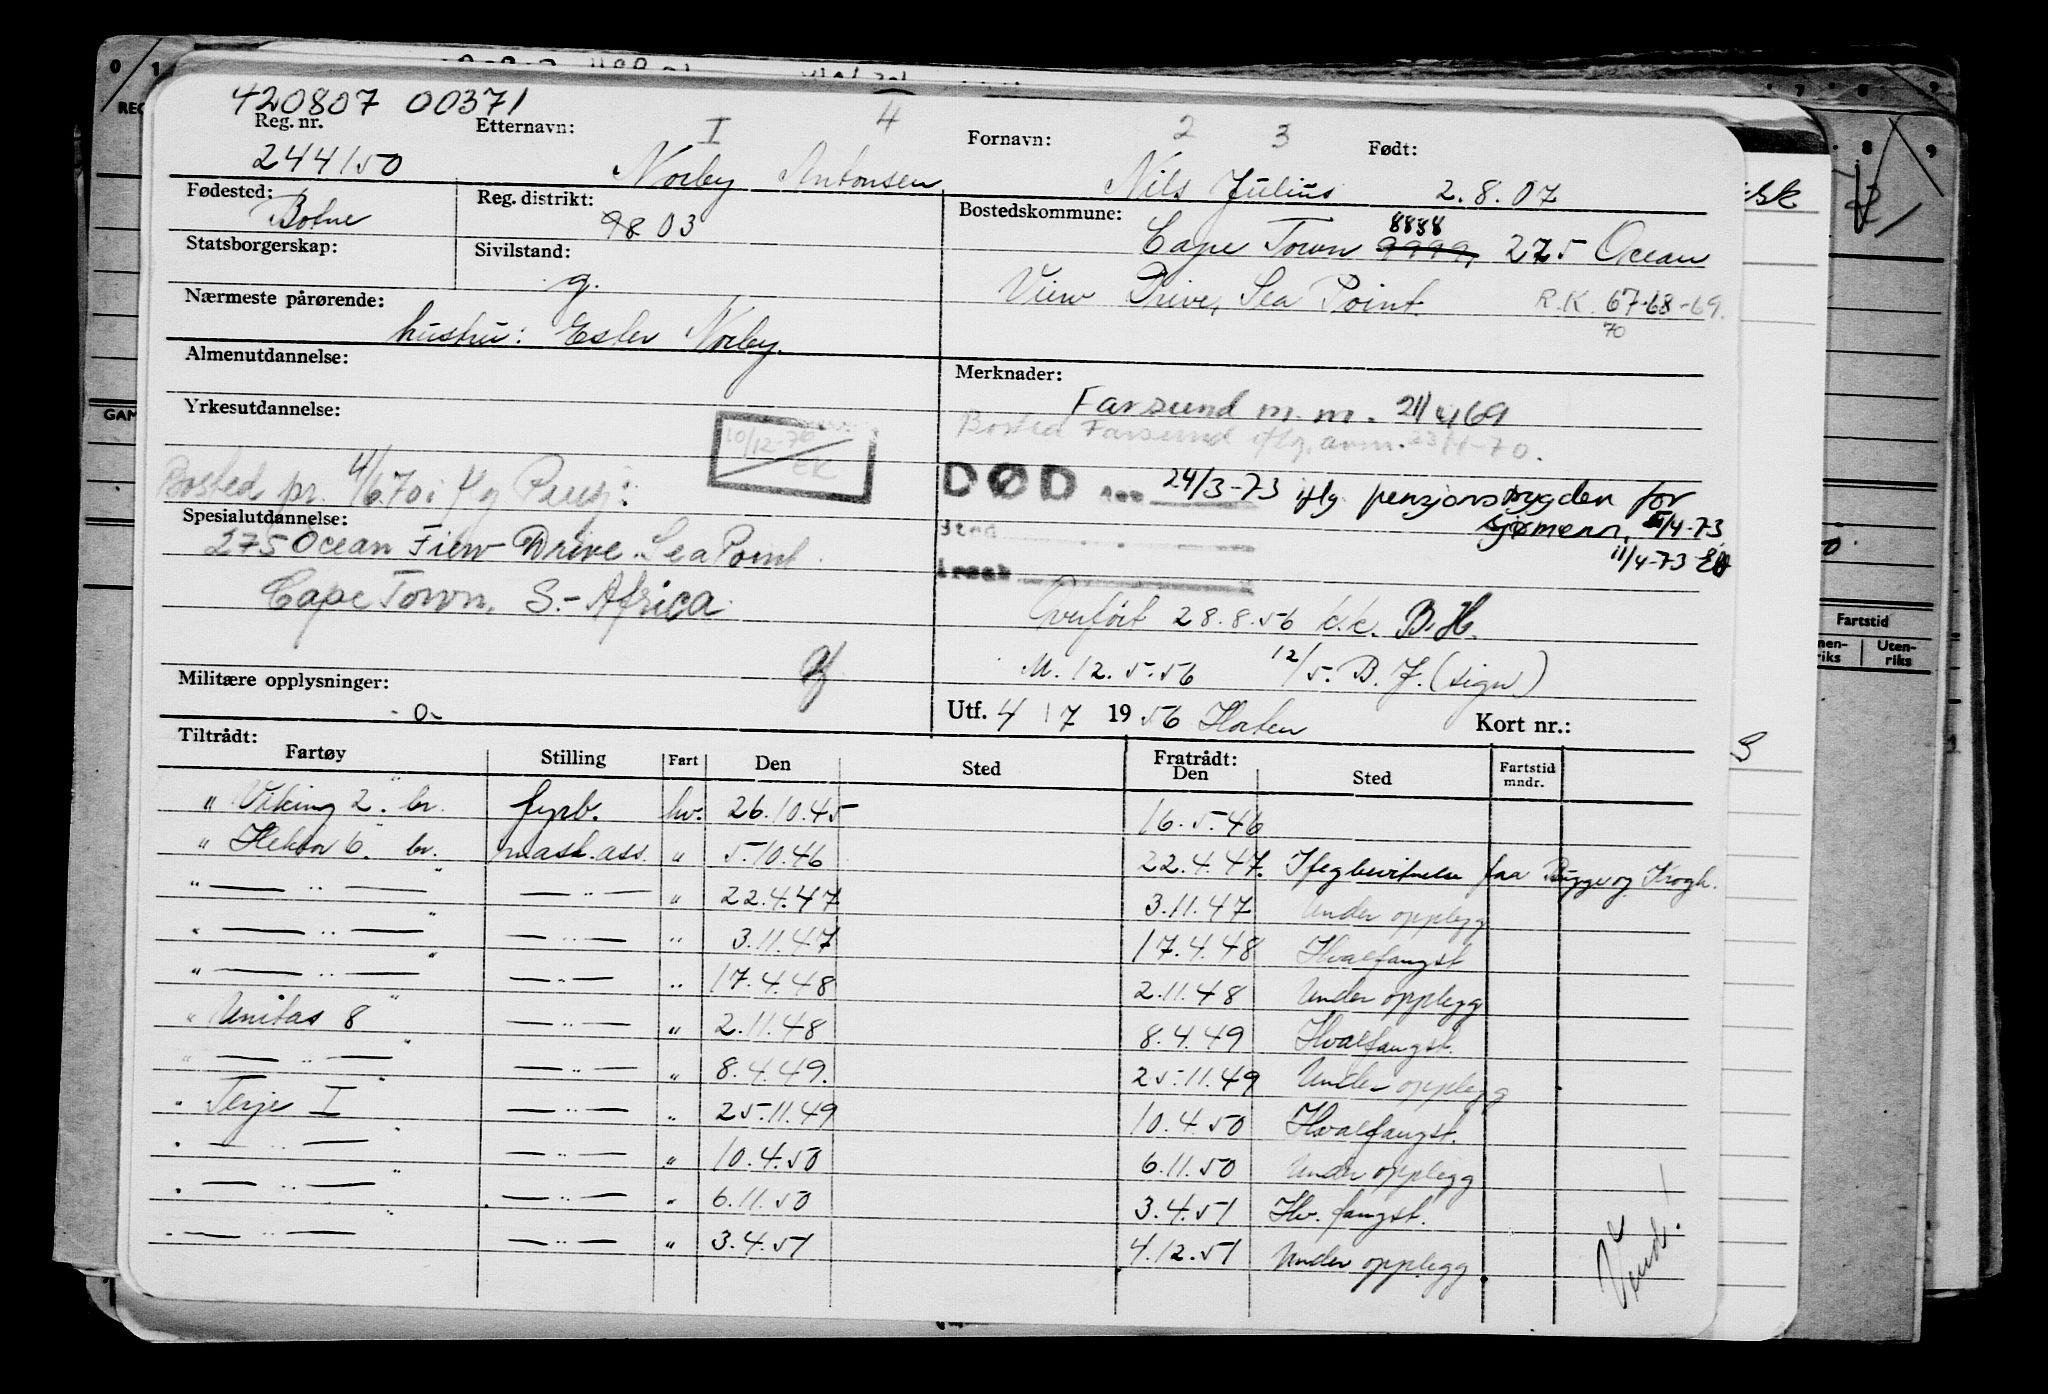 420807 00371
Reg. nr. Etternavn: I 4 Fornavn: 2 3 Født:
244150 Norby Antonsen Nils Julius 2.8.07
Fødested: Reg. distrikt: Bostedskommune:
Botne 9803 Cape Town 8888 9999, 275 Ocean
Statsborgerskap: Sivilstand:
g. View Drive, Sea Point. R.K. 67-68-69.
70
Nærmeste pårørende:
hustru: Ester Norby.
Almenutdannelse: Merknader:
Farsund m.m. 21/4 69
Yrkesutdannelse:
10/12-70
EK
Bosted Farsund iflg. anm. 23/1-70.
Bosted pr. 4/6.70 iflg Pensj:
DØD 24/3-73 iflg pensjonstrygden for
sjømenn, 11/4-73
11/4-73
Spesialutdannelse:
275 Ocean Fiew Drive. Sea Point.
Cape Town, S.-Africa.
Overført 28.8.56 k.k. B.H.
M. 12.5.56 12/5. B.J. (sign)
Militære opplysninger:
-0-
Utf. 4 / 7 1956 Horten Kort nr.:
Tiltrådt: Fratrådt:
Fartøy Stilling Fart Den Sted Den Sted Fartstid mndr.
" Viking 2." br. fyrb. hv. 26.10.45 16.5.46
" Hektor 6." br. mask.ass. " 5.10.46 22.4.47. Iflg bevitnelse fra Bugge og Krogh.
" — " — " — " — " 22.4.47 3.11.47 Under opplegg
" — " — " — " — " 3.11.47 17.4.48 Hvalfangst
" — " — " — " — " 17.4.48 2.11.48 Under opplegg
" Unitas 8" — " — " 2.11.48 8.4.49 Hvalfangst.
" — " — " — " — " 8.4.49. 25.11.49 Under opplegg
" Terje I" — " — " 25.11.49 10.4.50 Hvalfangst.
" — " — " — " — " 10.4.50 6.11.50 Under opplegg
" — " — " — " — " 6.11.50 3.4.51 Hv. fangst.
" — " — " — " — " 3.4.51 4.12.51 Under opplegg
Vend!
Fartstid
Uten-
riks